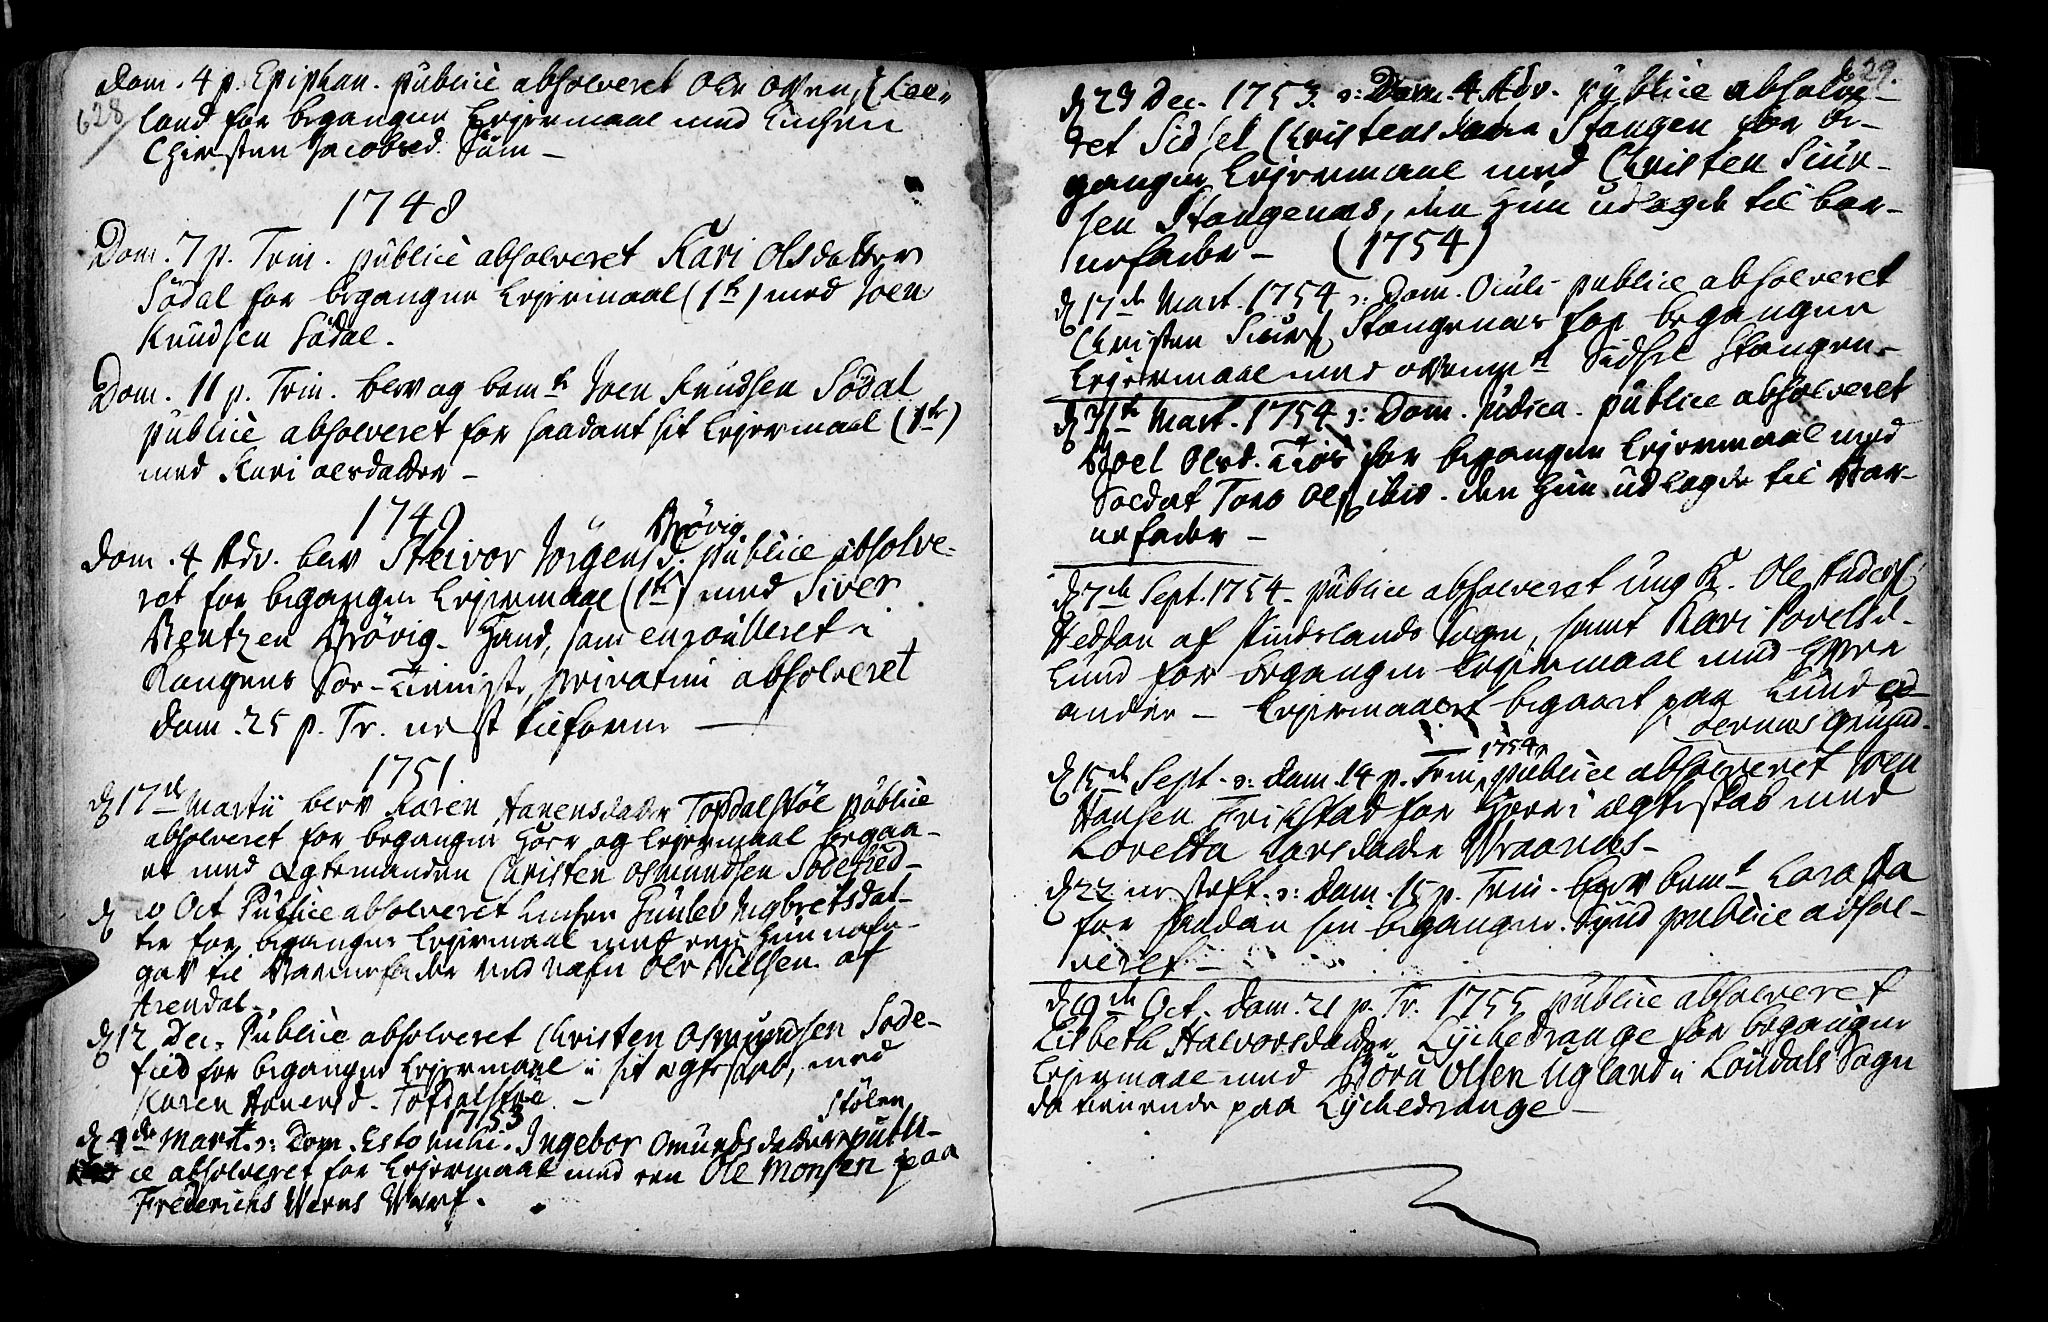 628
Dom. 4 p. Epiphan. publicè absolveret Ole
land for begangne Leiermaal med Enchen
Christen Jacobsd. Süm –
1748
Dom. 7 p. Trin. publicè absolveret Kari Olsdatter
Södal for begangne Leiermaal (1te) med Joen
Knudsen Södal.
Dom. 11 p. Trin. blev og bemte Joen Knudsen Södal
publicè absolveret for saadant sit Leiermaal (1te)
med Kari Olsdatter –
1749
Dom. 4 Adv. blev Steivor Jörgensd. Brövig publice absolve-
ret for begangen Leiermaal (1te) med Siver
Bentzen Brövig. Hand, som enroulleret i
Kongens Söe-Tieniste, privatim absolveret
Dom. 25 p. Tr. nest tilforne –
1751
d 17de Martii blev Karen Aanensdatter Topdalstöe publice
absolveret for begangen Hoer og Leiermaal begaa-
et med Ægtemanden Christen Osmundsen Södefied –
d 10 Oct Publice absolveret Gunlev Ingbretsdat-
ter for begangne Leiermaal med een Hun
gav til Barnefader ved nafn Ole Nielsen af
Arendal –
d 12 Dec. Publice absolveret Christen Osmundsen Söde-
fied for begangen Leiermaal i sit ægteskab, med
Karen Aanensd. Topdalstöe –
1753
d 4de Mart. ɔ: Dom. Esto mihi. Ingebor Omundsdatter Stölen publi-
ce absolveret for Leiermaal med een Ole Monsen paa
Friderichs Werns Werf.
629.
d 23 Dec. 1753. ɔ: Dom. 4 Adv. publice absolve-
ret Sidsel Christensdatter Stangen for be-
gangen Leiermaal med Christen Siur-
sen Stangenæs, den Hun udlagde til bar-
nefader – (1754)
d 17de Mart. 1754 ɔ: Dom. Oculi publice absolveret
Christen Siurs. Stangenæs for begangen
Leiermaal med Sidsel Stangen –
d 31te Mart. 1754 ɔ: Dom. Judica. publice absolveret
Joel Olsd. for begangen Leiermaal med
Soldat Tore Ols. ibid. den Hun udlagde til Bar-
nefader –
d 7de Sept. 1754. publice absolveret ung K. Ole Anders.
Heddan af Findslands Sogn, samt Kari Povelsd.
Lund for begangen Leiermaal med hver
anden – Leiermaalet begaaet paa Lund
d 15de Sept. ɔ: Dom. 14 p. Trin. 1754 publice absolveret Joen
Hansen Frikstad for Hoer i ægteskab med
Loretta Larsdatter Vraanæs –
d 22 nesteft. ɔ: Dom. 15 p. Trin. blev bemte
for saadan sin begangne Synd publice absol-
veret –
d 19de Oct. Dom. 21 p. Tr. 1755 publice absolveret
Lisbeth Halvorsdatter Lyckedrange for begangen
Leiermaal med Börn Olsen Ugland i Löndals Sogn
da tienende paa Lyckedrange –